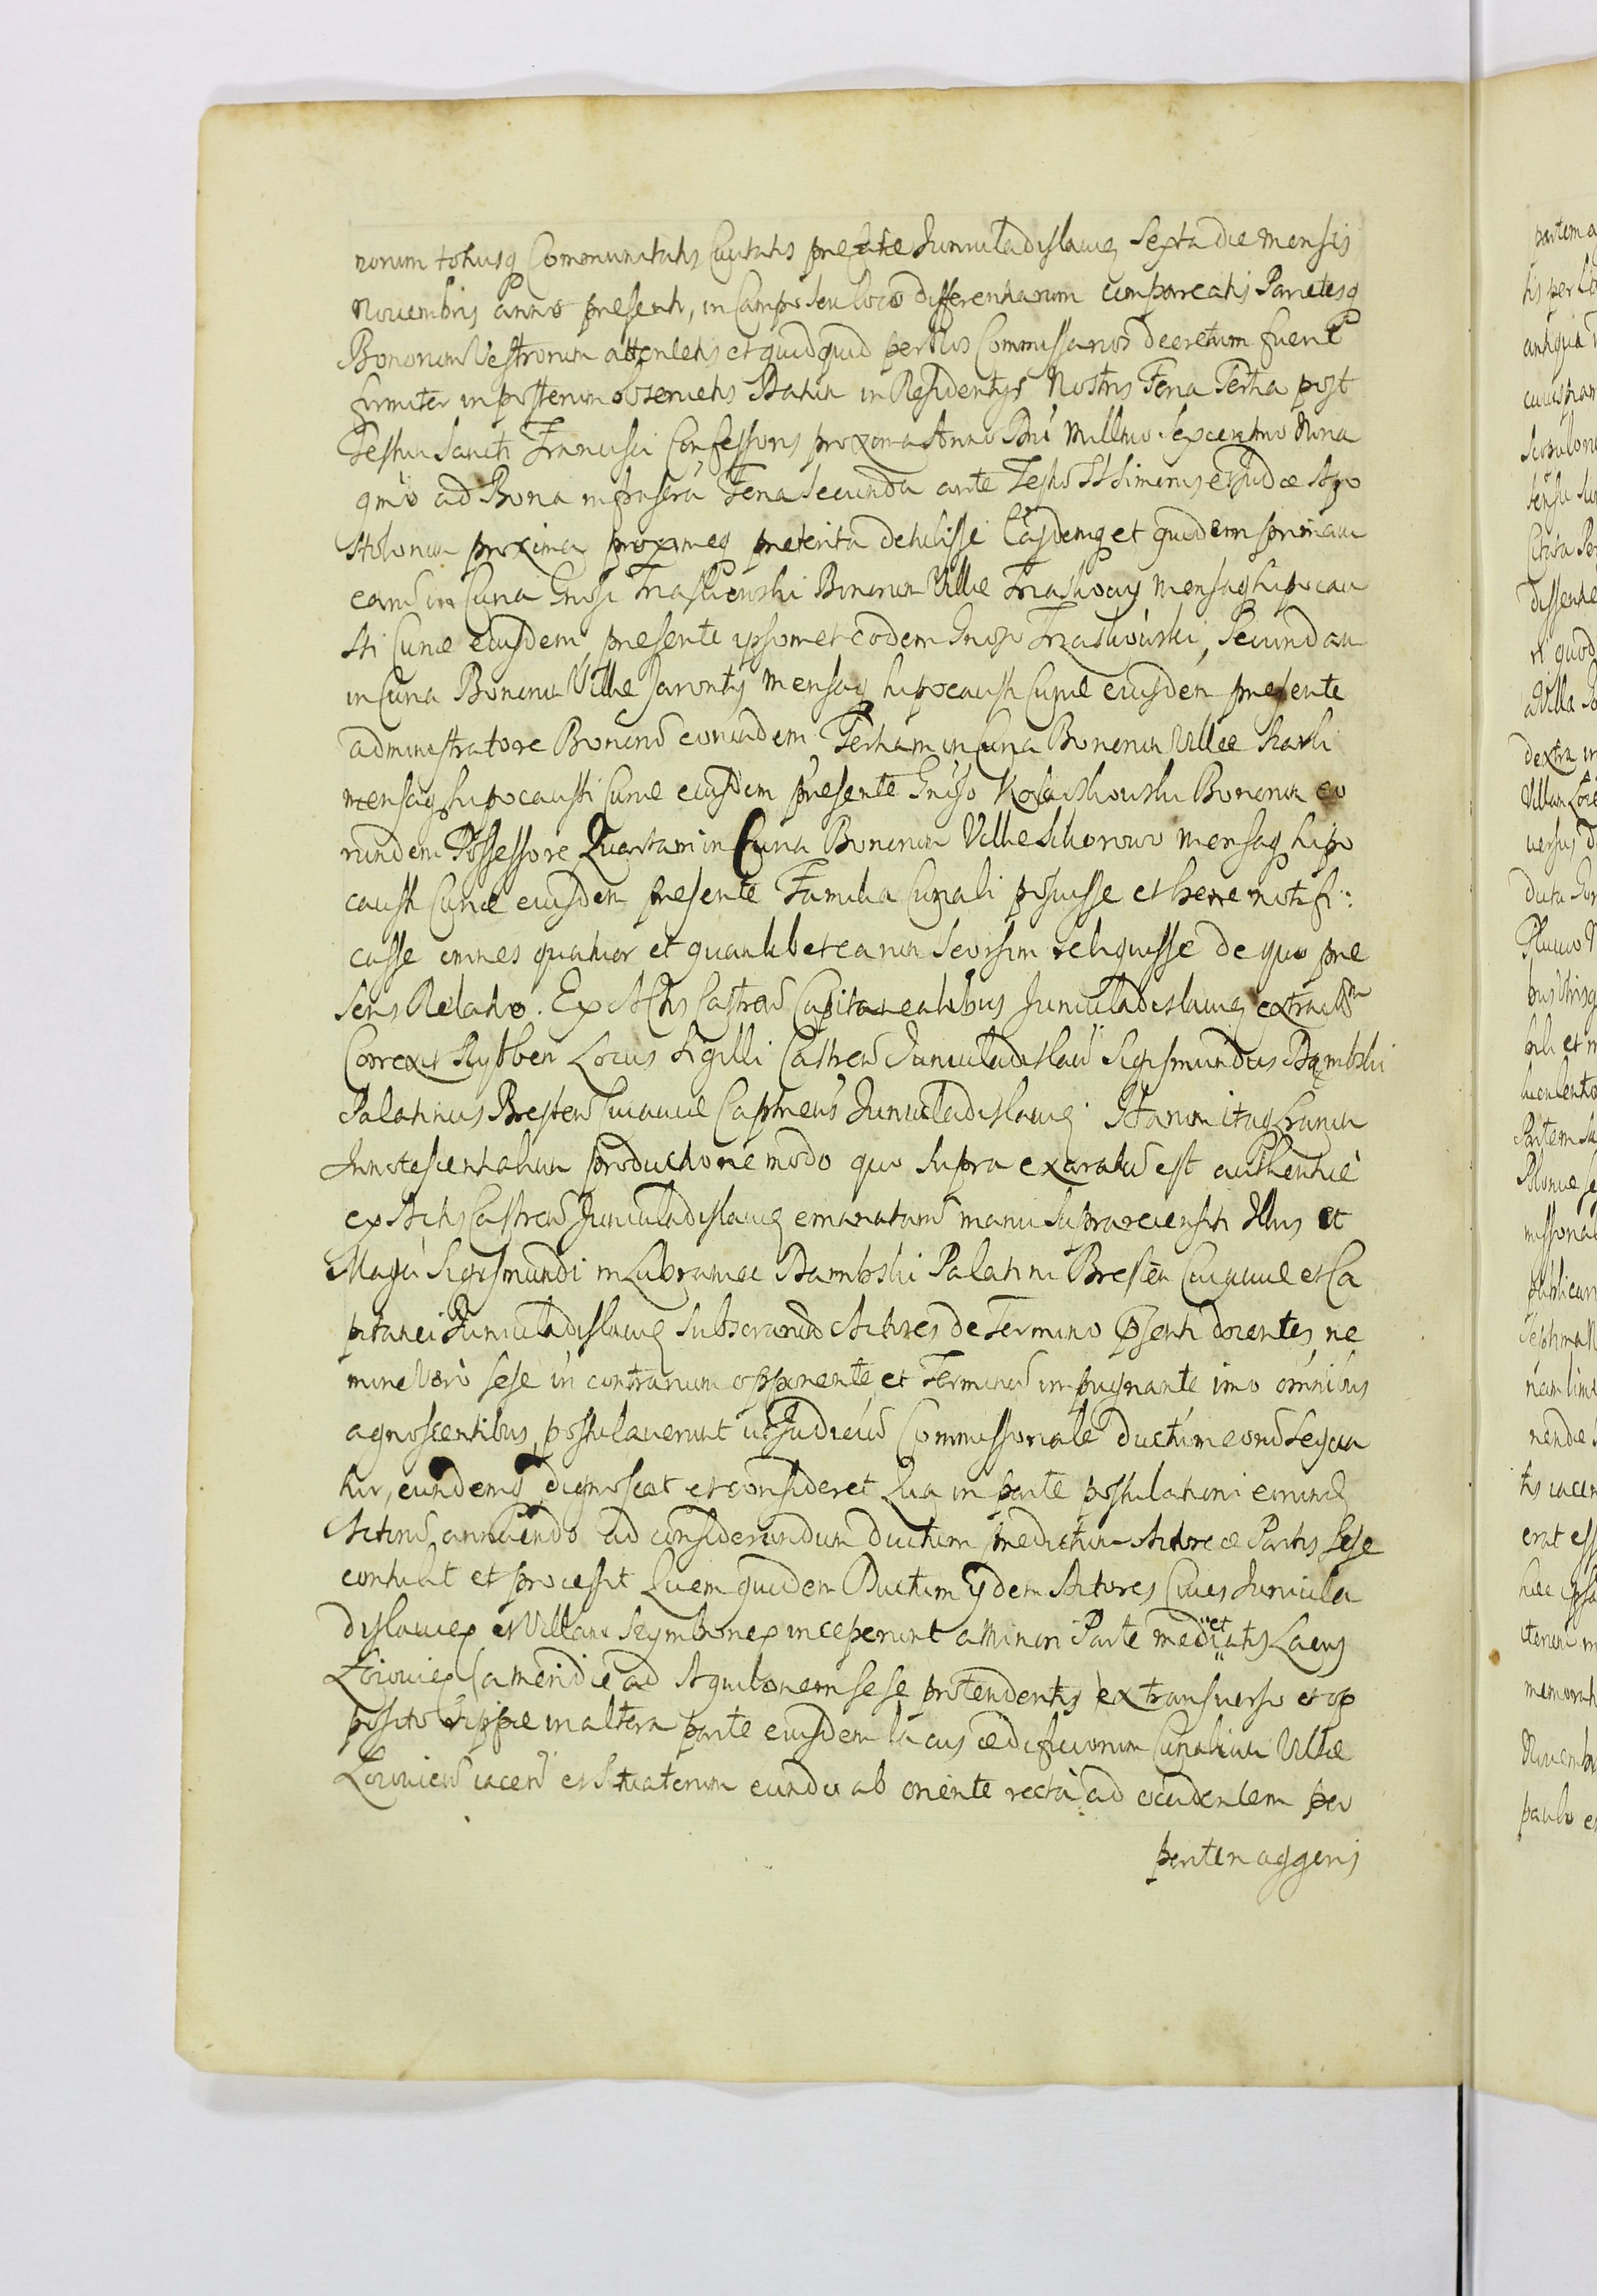 norum totiusq Communitatis Civitatis prefatæ Juniuladislauie Sexta die Mensis
Nouembris anno presenti, in Campo seu loco differentiarum compareatis Parietesq
Bonorum Vestrorum attendetis et quidquid per Nos Commissarios decretum fuerit
firmiter in posterum obseruetis Datum in Residentijs Nostris Feria Tertia post
Festum Sancti Francisci Confessoris proxima Anno Dni Millmo Sexcentmo Nona
gmo ad Bona infrascra Feria Secunda ante Festu SS Simonis et Judæ Apo
stolorum proxima proximeq preterita detulisse Easdemq et quidem primam
earu in Curia Gnosi Trzaskowski Bonorum Villæ Trzaskowy Mensaq hipocau
sti Curiæ eiusdem, presente ipsomet eodem Gnoso Trzaskowski, Secundam
in Curia Bonorum Villæ Jaronty Mensaq hipocausti Curiæ eiusdem presente
administratore Bonoru eorundem, Tertiam in Curia Bonorum Villæ Skarki
mensaq hipocausti Curiæ eiusdem presente Gnoso Kołaczkowski Bonorum eo
rundem Possessore Quartam in Curia Bonorum Villæ Sikorowo Mensaq hipo
causti Curiæ eiusdem presente Familia Curiali posuisse et bene notifi:
casse omnes quatuor et quamlibet earum seorsim reliquisse de quo præ
sens Relatio. Ex Actis Castren Capitanealibus Juniuladislauie extractm
Correxit Rybben Locus Sigilli Castren Juniuladislau Sigismundus Dąmbski
Palatinus Bresten Cuiauiæ Capneus Juniuladislauie. Harum itaq Trium
Innotescentialium productione modo quo supra exaratu est authenticè
ex Actis Castren Juniuladislauie emanataru manu suprarecensiti Illris et
Magci Sigismundi in Lubraniec Dambski Palatini Bresten Cuiauiæ et Ca
pitanei Juniuladislauie subscriptaru Actores de Termino psenti docentes, ne
mine Vero sese in contrarium opponente et Terminu impugnante imo omnibus
agnoscentibus, postulauerunt ut Judiciu Commissoriale ductum eoru sequa
tur, eundemq dignoscat et consideret Qua in parte postulationi eorund
Actoru annuendo ad considerandum ductum predictum Actoreæ Partis sese
contulit et processit Quem quidem Ductum ijdem Actores Ciues Juniula
dislauien et Villani Szymbonen inceperunt a Minori Parte mediætatis Lacus
Łoiouien (a meridie ad Aquilonem sese protendentis) ex transuerso et op
posito Rippæ in altera parte eiusdem lacus ædificiorum Curialium Villæ
Łoiouien iacen et situatorum eundo ab oriente rectà ad occidentem per
partem aggeris